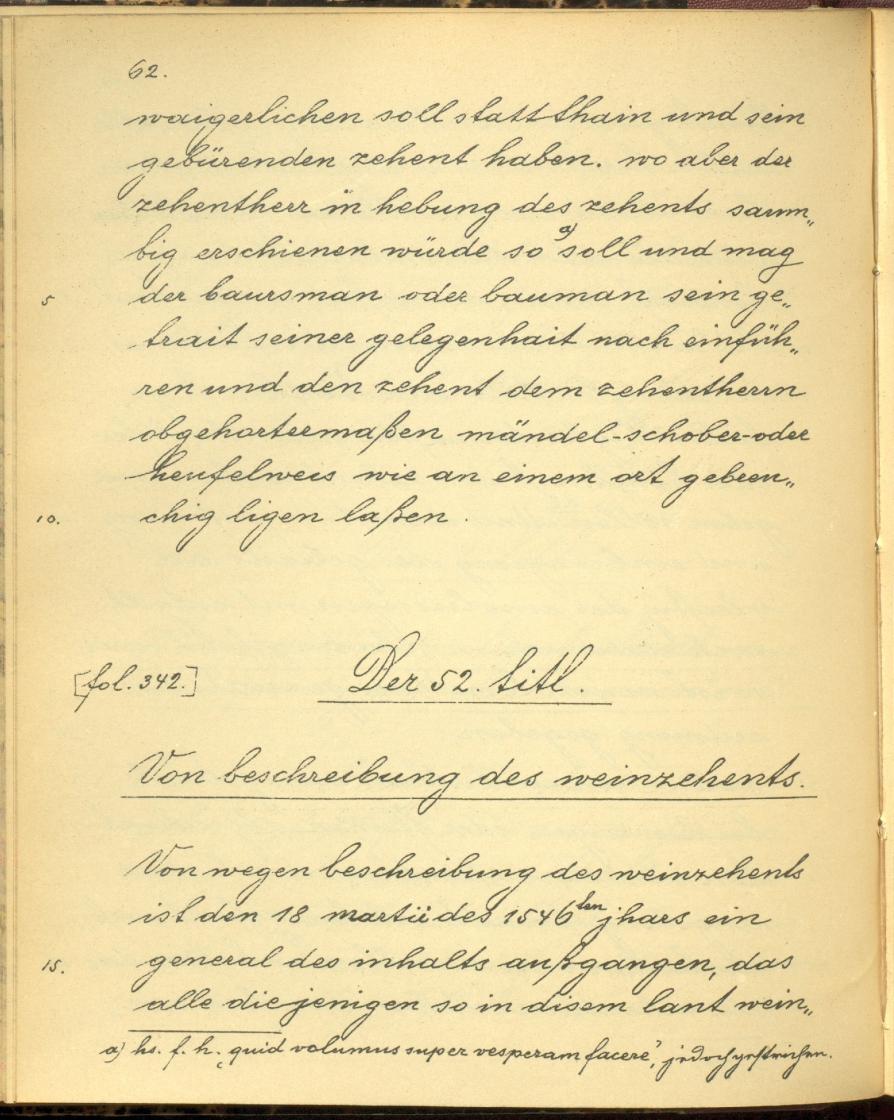 62.
waigerlichen soll statt thain und sein
gebürenden zehent haben. wo aber der
zehentherr in hebung des zehents saum„
big erschienen würde so a) soll und mag
5 der baursman oder bauman sein ge„
trait seiner gelegenhait nach einfüh„
ren und den zehent dem zehentherrn
obgehortermaßen mändel-schober-oder
heufelweis wie an einem ort gebreu„
10. chig ligen laßen.
[fol. 342.] Der 52. titl.
Von beschreibung des weinzehents.
Von wegen beschreibung des weinzehents
ist den 18 martii des 1546ten jhars ein
15. general des inhalts außgangen, das
alle diejenigen so in disem lant wein„
a) hs. f. h. „quid volumus super vesperam facere", jedoch gestrichen.